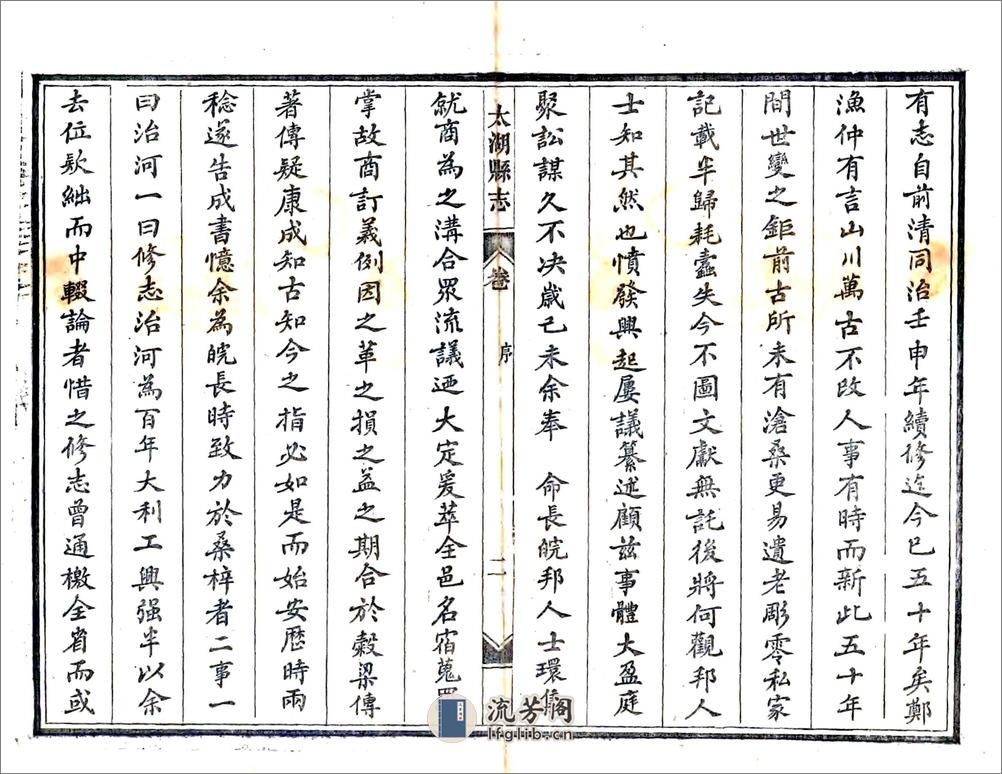 有志自前清同治壬申年續修迄今已五十年矣鄭
漁仲有言山川萬古不改人事有時而新此五十年
間世變之鉅前古所未有滄桑更易遺老彫零私家
記載半歸耗蠧失今不圖文獻無託後將何觀邦人
士知其然也憤發興起屢議纂述顧茲事體大盈庭
聚訟謀久不決歲己未余奉 命長皖邦人士環集
太湖縣志 卷 序 二
就商為之溝合眾流議迺大定爰萃全邑名宿蒐羅
掌故商訂義例因之革之損之益之期合於穀梁傳
著傳疑康成知古知今之指必如是而始安歷時兩
稔遂告成書憶余為皖長時致力於桑梓者二事一
曰治河一曰修志治河為百年大利工興强半以余
去位欵絀而中輟論者惜之修志曾通檄全省而或
流芳阁
lfglib.cn